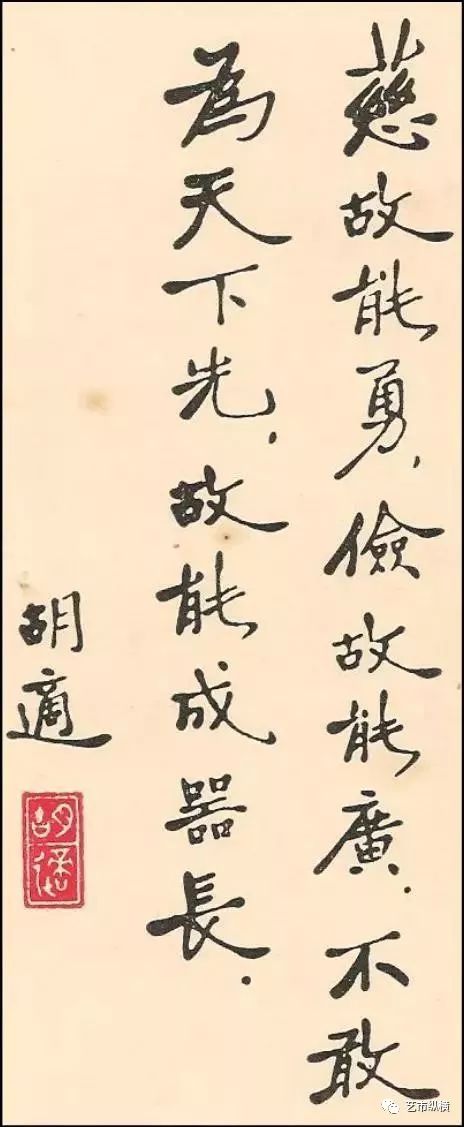 慈故能勇，儉故能廣．不敢
為天下先，故能成器長．
胡適
胡適
艺市纵横